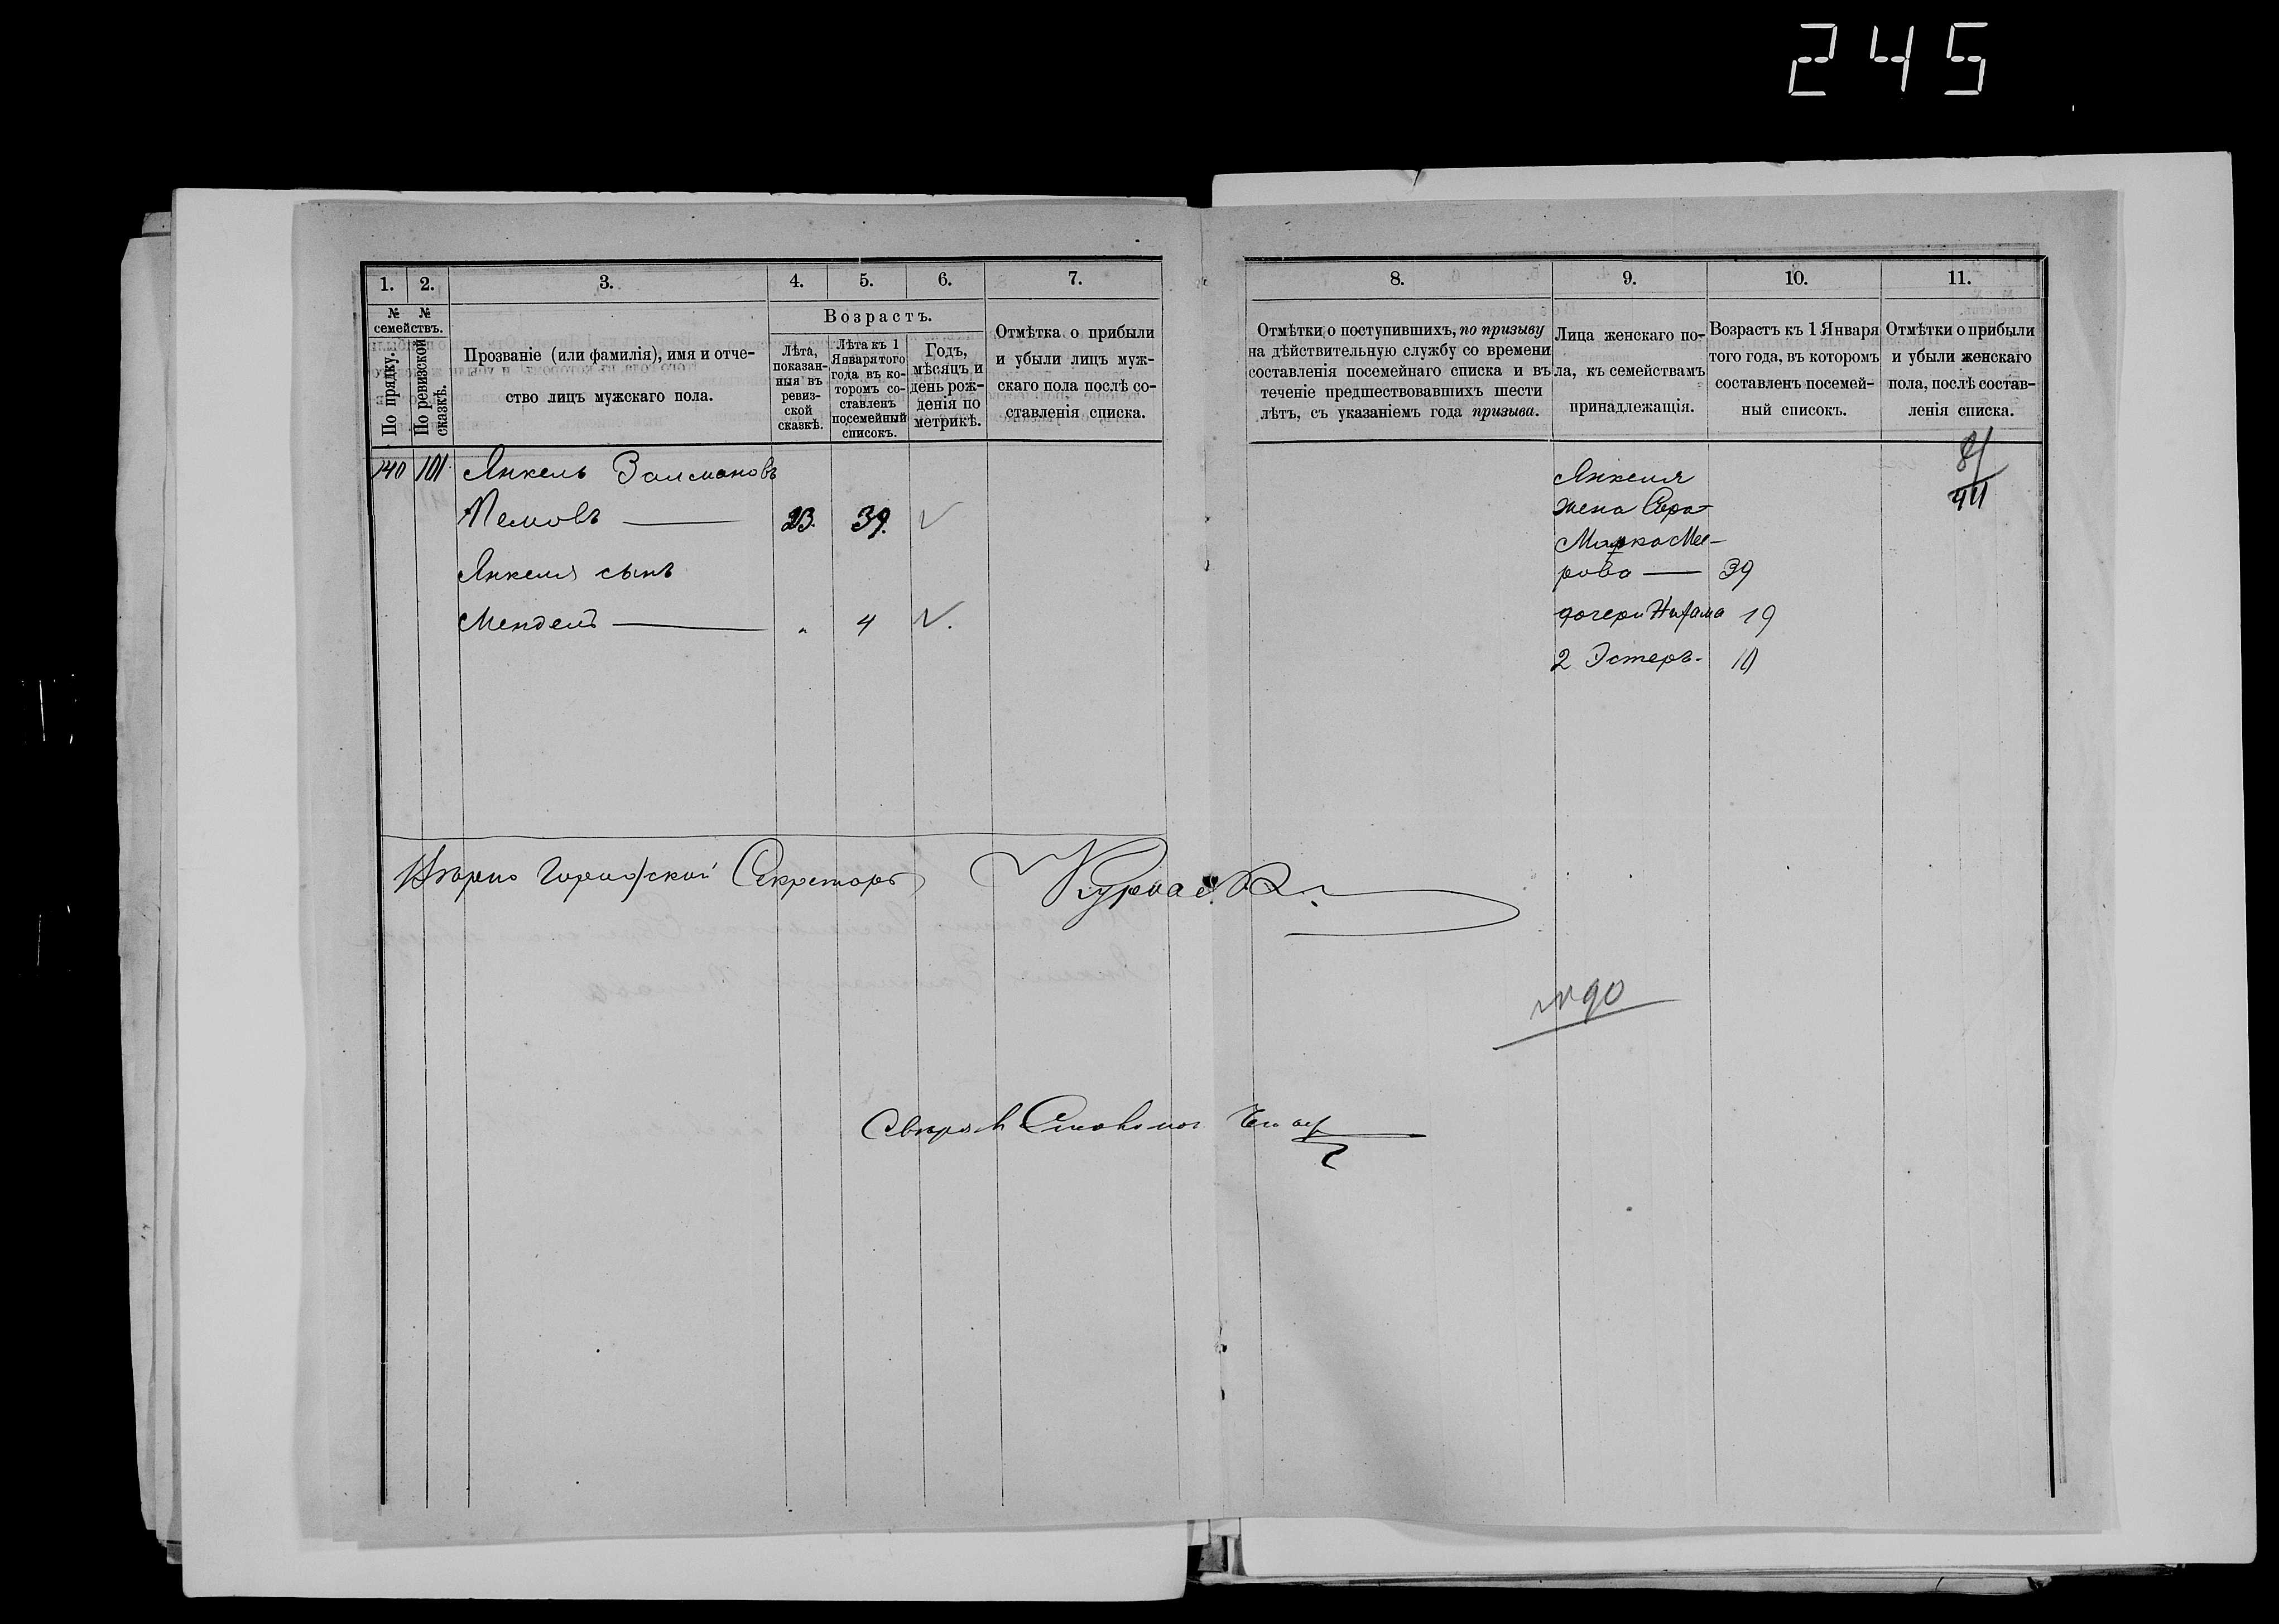 245
1.
2.
3.
4.
5.
6.
7.
№ №
семействъ.
По прядку.
По ревизской сказкѣ.
Прозваніе (или фамилія), имя и отче-
ство лицъ мужскаго пола.
Возрастъ.
Лѣта,
показан-
ныя въ
ревиз-
ской
сказкѣ.
Лѣта къ 1
Января того
года въ ко-
торомъ со-
ставленъ
посемейный
списокъ.
Годъ,
мѣсяцъ и
день рож-
денія по
метрикѣ.
Отмѣтка о прибыли
и убыли лицъ муж-
скаго пола послѣ со-
ставленія списка.
140 101 Янкель Залмановъ
Пемовъ 23. 39.
Янкеля сынъ
Мендель " 4
Вѣрно Городской Секретарь
Свѣрялъ
8.
9.
10.
11.
Отмѣтки о поступившихъ, по призыву
на дѣйствительную службу со времени
составленія посемейнаго списка и въ
теченіе предшествовавшихъ шести
лѣтъ, съ указаніемъ года призыва.
Лица женскаго по-
ла, къ семействамъ
принадлежащія.
Возрастъ къ 1 Января
того года, въ которомъ
составленъ посемей-
ный списокъ.
Отмѣтки о прибыли
и убыли женскаго
пола, послѣ состав-
ленія списка.
Янкеля
жена Сора
Мее-
рова 39
дочери 19
2 Эстеръ 10
№ 90